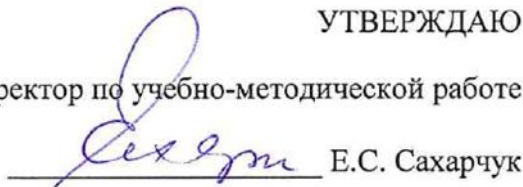 УТВЕРЖДАЮ
по учебно-методической работе
Е.С. Сахарчук